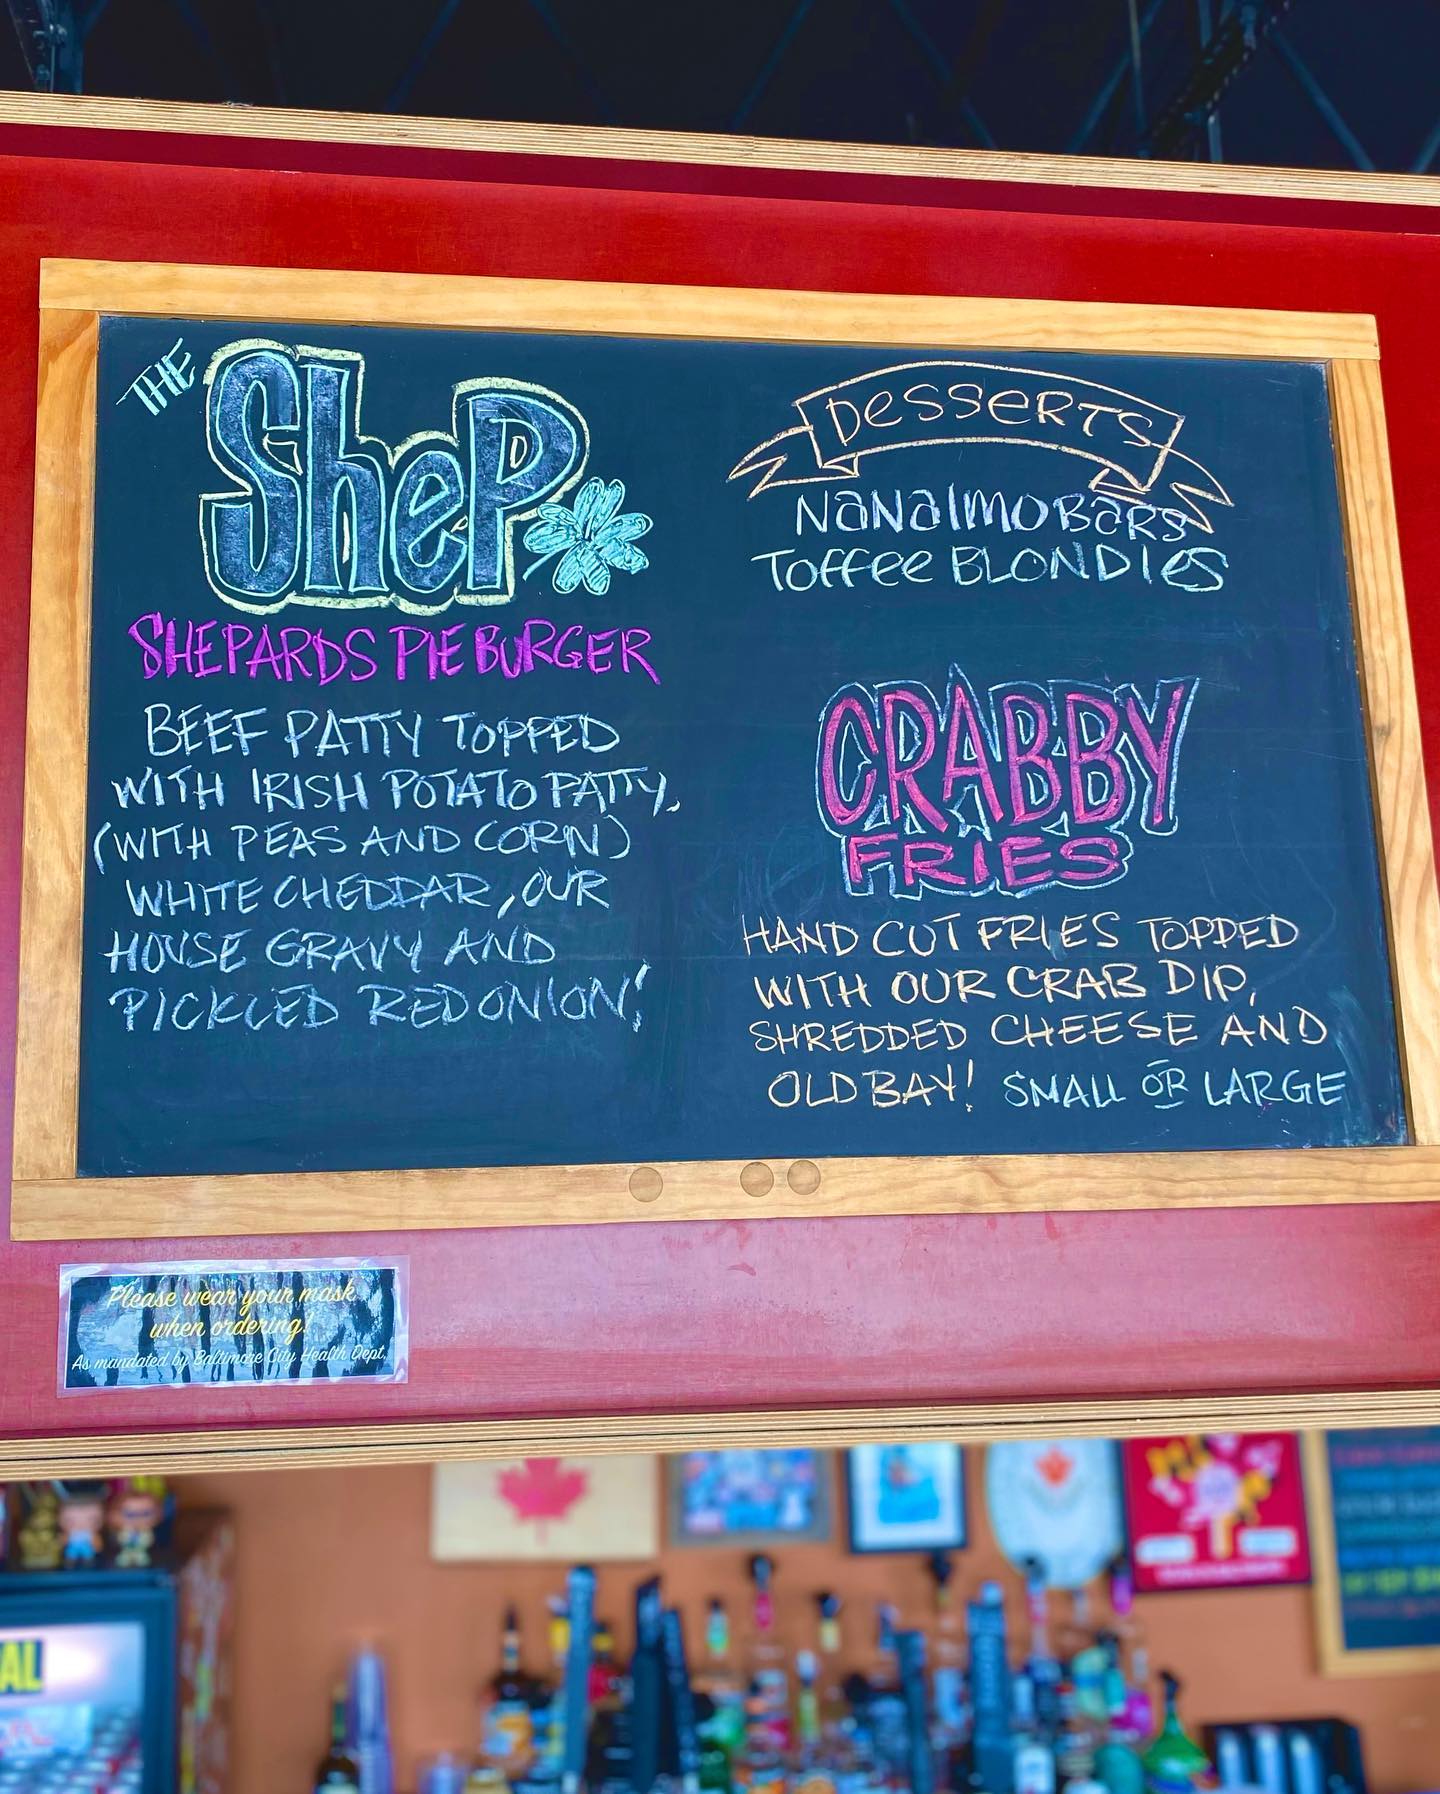 THE
SheP
SHEPARDS PIE BURGER
BEEF PATTY TOPPED
WITH IRISH POTATO PATTY,
(WITH PEAS AND CORN)
WHITE CHEDDAR, OUR
HOUSE GRAVY AND
PICKLED RED ONION!
DesserTs
NaNaImo Bars
Toffee BLONDIEs
CRABBY
FRIES
HAND CUT FRIES TOPPED
WITH OUR CRAB DIP,
SHREDDED CHEESE AND
OLD BAY! SMALL OR LARGE
Please wear your mask
when ordering!
As mandated by Baltimore City Health Dept.
AL